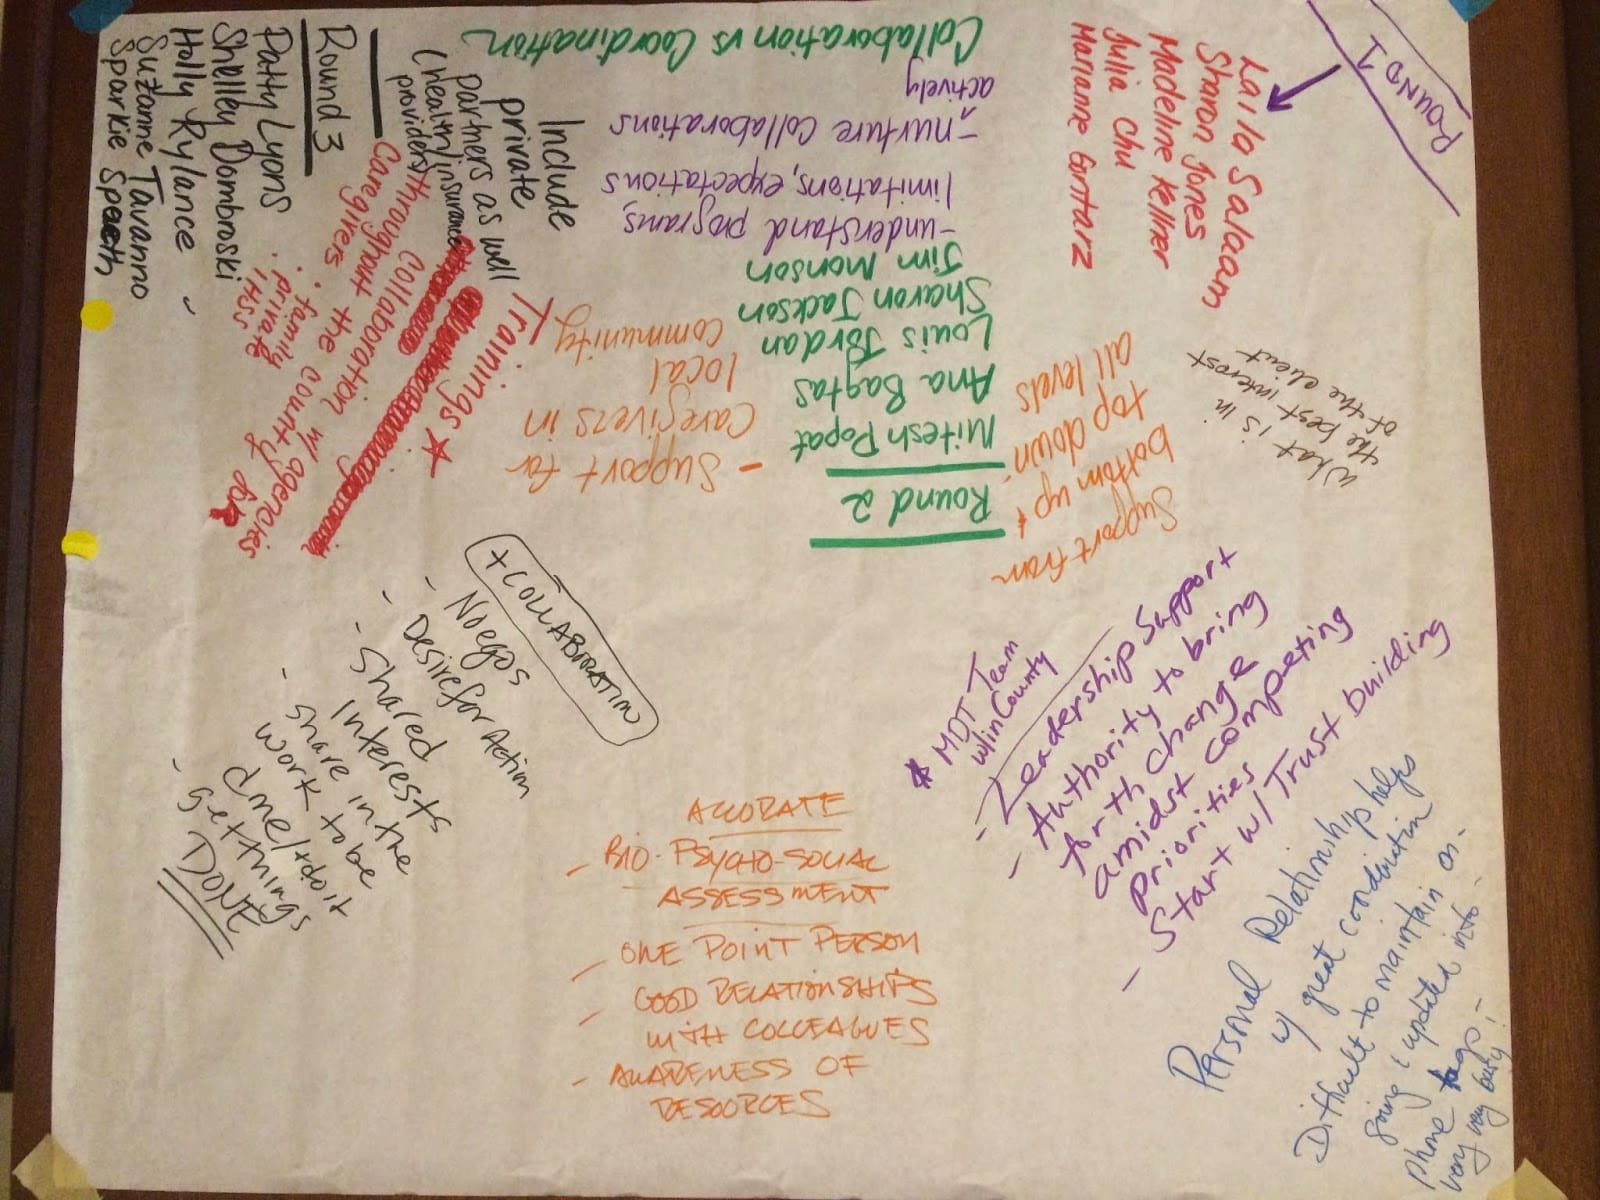 ROUND 1
Laila Salacam
Sharon Jones
Madeline Kellner
Julia Chu
Marianne Gortarz
Collaboration vs Coordination
-understand programs,
limitations, expectations
-nurture collaborations
actively
Round 2
Nitesh Popat
Ana Bagtas
Louis Jordan
Sharon Jackson
Jim Monson
Round 3
Patty Lyons
Shelley Dombroski
Holly Rylance
Suzanne Tavanno
Sparkie Spaeth
Include
private
partners as well
(health/insurance
providers)
Trainings ★
throughout the county for
collaboration w/ agencies
Caregivers
· family
· private
· IHSS
- Support for
Caregivers in
local
community
Support from
bottom up &
top down.
all levels
What is in
the best interest
of the client
+ COLLABORATION
- No egos
- Desire for Action
- Shared
Interests
- share in the
work to be
done/to do it
- get things
DONE
ACCURATE
- BIO-PSYCHO-SOCIAL
ASSESSMENT
- ONE POINT PERSON
- GOOD RELATIONSHIPS
WITH COLLEAGUES
- AWARENESS OF
RESORCES
* MDT Team
w/in County
- Leadership Support
- Authority to bring
forth change
amidst competing
priorities
- Start w/ Trust building
Personal Relationship helps
w/ great coordination
Difficult to maintain on-
going & updated info -
phone tags -
very very busy!